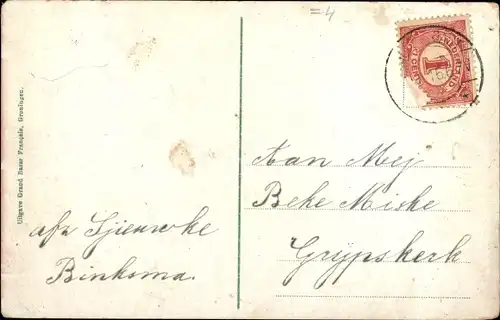 =4
NEDERLAND
1
Uitgave Grand Bazar Français, Groningen.
Aan Mej
Beke Miske
Grijpskerk
afz Sjieuwke
Binksma.